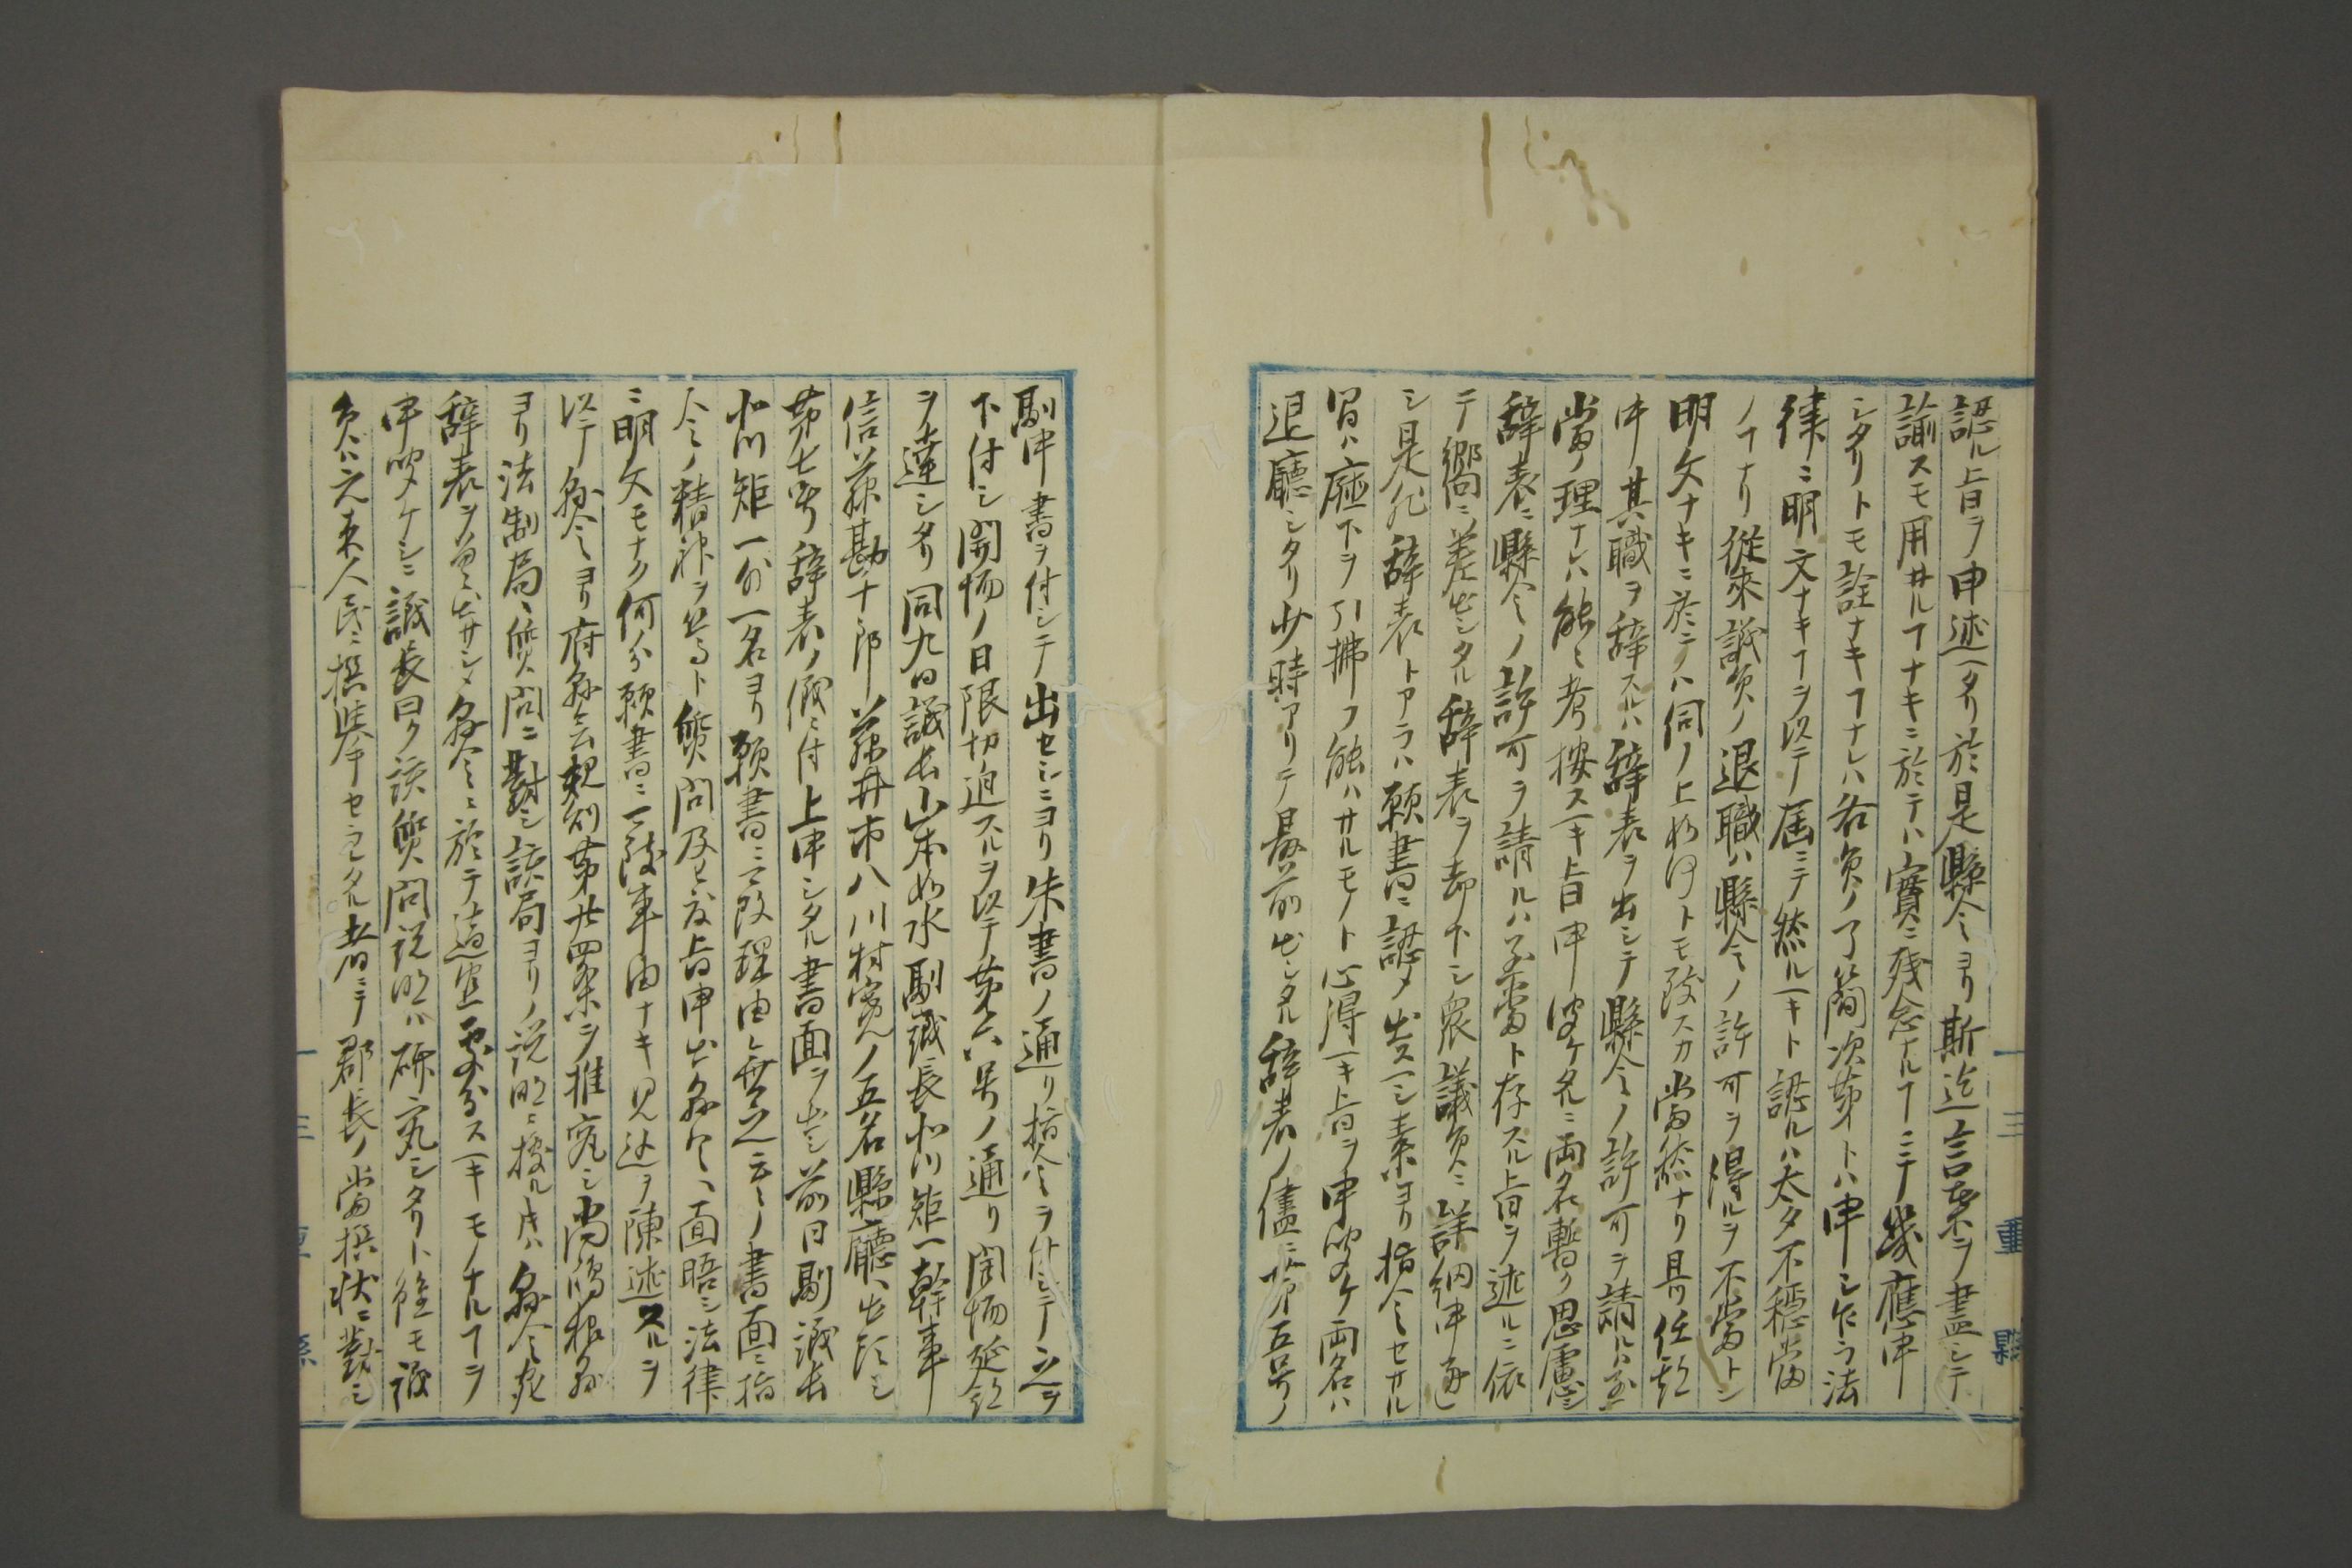 認ル旨ヲ申述ヘタリ於是縣令ヨリ斯迄言葉ヲ盡シテ
諭スモ用井ルヿナキニ於テハ實ニ残念ナルヿニテ幾應申
シタリトモ詮ナキヿナレハ各員ノ了簡次第トハ申シ乍ラ法
律ニ明文ナキヿヲ以テ屆ニテ然ルヘキト認ルハ太タ不穏當
ノヿナリ従來議員ノ退職ハ縣令ノ許可ヲ得ルヲ不當トシ
明文ナキニ於テハ伺ノ上ナリトモ致スカ當然ナリ縣
其職ヲ辞スルハ辞表ヲ出シテ縣令ノ許可ヲ請ルハ至
當ノ理ナレハ能ク考按スヘキ旨申聞ケタルニ両名暫ク思慮シ
辞表ニ縣令ノ許可ヲ請ルハ至當ト存スル旨ヲ述ルニ依
テ嚮ニ差出シタル辞表ヲ却下シ衆議員ニ詳細申通
シ是非辞表トアラハ願書ニ認メ出スヘシ素ヨリ指令セサル
間ハ廰下ヲ引拂フ能ハサルモノト心得ヘキ旨ヲ申聞ケ両名ハ
退廳シタリ少時アリテ最前出シタル辞表ノ儘ニ第五号ノ
副申書ヲ付シテ出セシニヨリ朱書ノ通リ指令ヲ付シテ之ヲ
下付シ開場ノ日限切迫スルヲ以テ第六号ノ通リ開場延期
ヲ達シタリ同九日議長山本如水副議長北川矩一幹事
信藤勘十郎藤井市八川村寛ノ五名縣廳ヘ出頭シ
第七号辞表ノ儀ニ付上申シタル書面ヲ出シ前日副議長
北川矩一外一名ヨリ願書ニ改理由無之云々ノ書面ニ指
令ノ精神ヲ
質問及ヒ度旨申出縣令ヘ面晤シ法律
ニ明文モナク何分願書ニ可致事由ナキ見込ヲ陳述スルヲ
以テ縣令ヨリ府縣会規則第廿四条ヲ推究シ尚
縣
ヨリ法制局ヘ質問ニ對シ該局ヨリノ説明ニ據ル片ハ縣令ハ
辞表ヲ差出サシメ縣令ニ於テ適宜処分スヘキモノナルヿヲ
申聞ケシニ議長曰ク該質問説明ハ研究シタリト雖モ議
員ハ元来人民ニ撰擧セラレタル者ニテ郡長ノ當撰状ニ對シ
三重縣